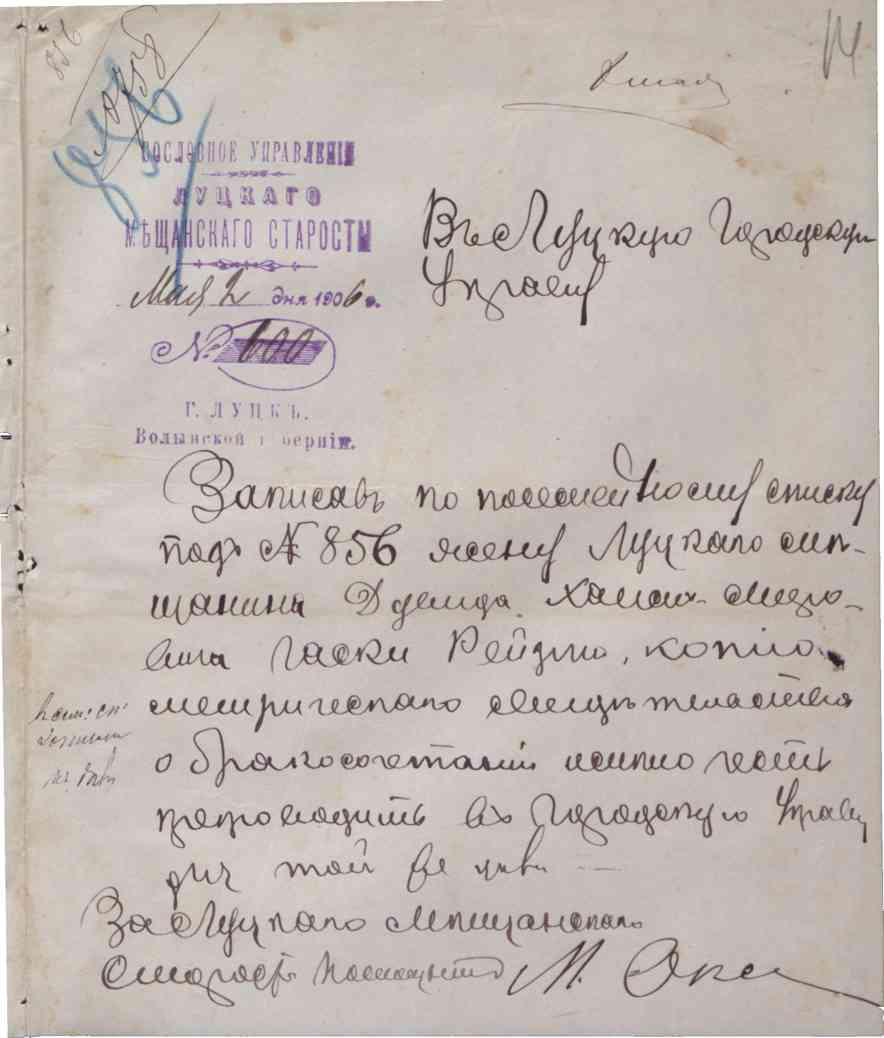 856
14
СОСЛОВНОЕ УПРАВЛЕНІЕ
ЛУЦКАГО
МѢЩАНСКАГО СТАРОСТЫ
Мая 2 дня 1906 г.
№ 600
Г. ЛУЦКЪ.
Волынской губерніи.
Въ Луцкую Городскую
Управу
Записавъ по посемейному списку
подъ № 856 жену Луцкаго мѣ-
щанина
Рейзю, копію
метрическаго свидѣтельства
о бракосочетаніи имѣю честь
препроводить въ Городскую Управу
для той же
За Луцкаго Мѣщанскаго
Старосту Помощникъ М.